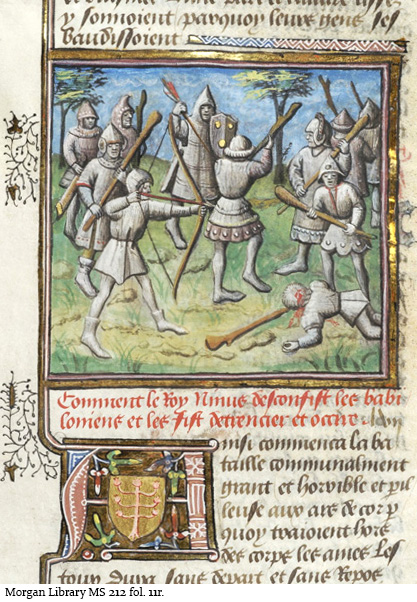 p sonnoient parquoy leurs gens ses
baudissoient
Comment le Roy Ninus desconfist les babi
loniens et les fist detrencier et occire
insi commenca la ba
taille communalment
grant et horrible et pil
leuse aux ars de cor p
quoy traioient hors
des corps les ames Les
sans depart et sans Repos
Morgan Library MS 212 fol. 11r.